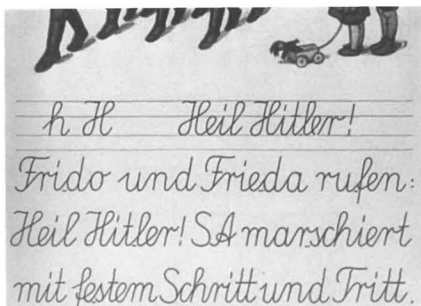 h H Heil Hitler!
Frido und Frieda rufen:
Heil Hitler! SA marschiert
mit festem Schritt und Tritt.